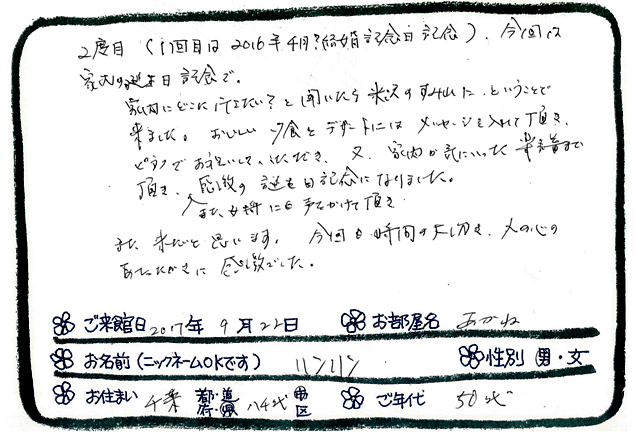 2度目（1回目は2016年4月?結婚記念日記念）、今回は
家内の誕生日記念で。
家内にどこに行きたい？と聞いたら米沢のすみれに、ということで
来ました。おいしい夕食とデザートにはメッセージを入れて頂き、
ピアノでお祝いしていただき、又、家内が気にいった
頂き、感激の誕生日記念になりました。
また、女将にも声をかけて頂き
また、来たいと思います。今回も時間の大切さ、人の心の
あたたかさに感激でした。
ご来館日 2017年 9月22日 お部屋名 あかね
お名前（ニックネームOKです） リンリン 性別 男・女
お住まい 千葉 都・道・府・県 八千代 市区 ご年代 50代